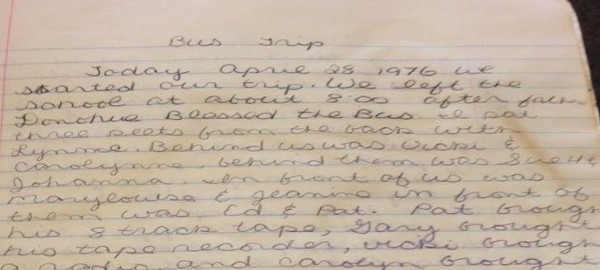 Bus Trip
Today April 28, 1976 we
started our trip. We left the
school at about 8:00 after father
Donohue Blessed the Bus. I sat
three seets from the back with
Lynne. Behind us was Vicki &
Carolynne, behind them was Sue &
Johanna. In front of us was
Marylouise & Jeanine in front of
them was Ed & Pat. Pat brough
his 8 track tape, Gary brought
his tape recorder, Vicki brough
a radio and Carolyn brought